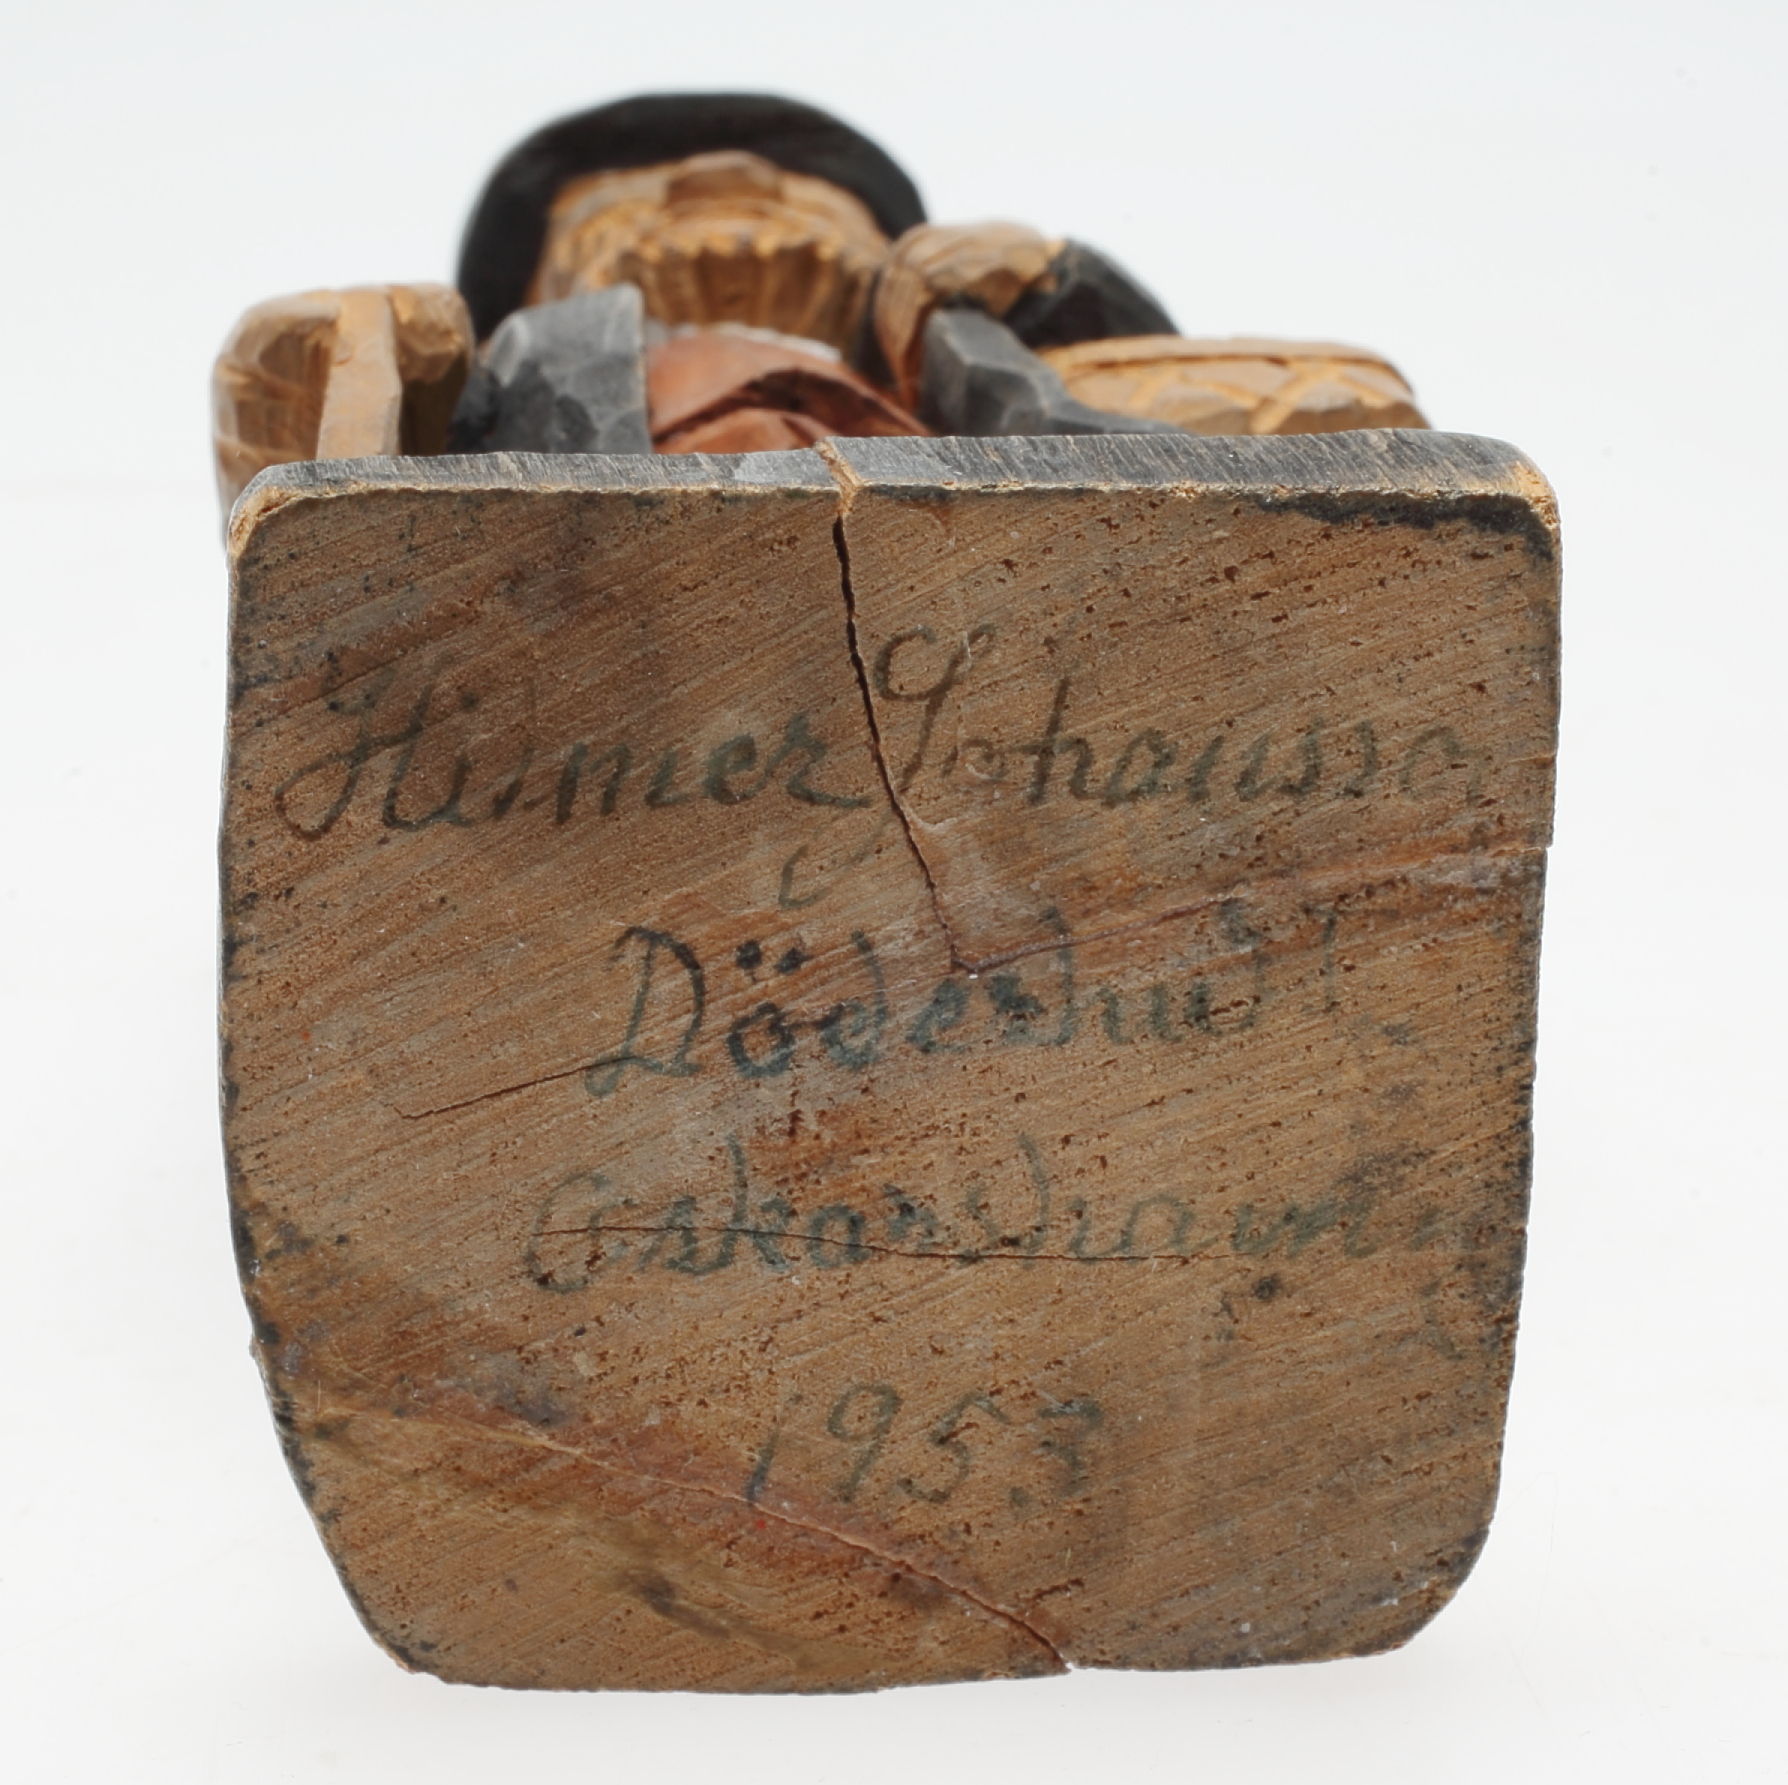 Hilmer Johansson
Döderhult
Oskarshamn
1953